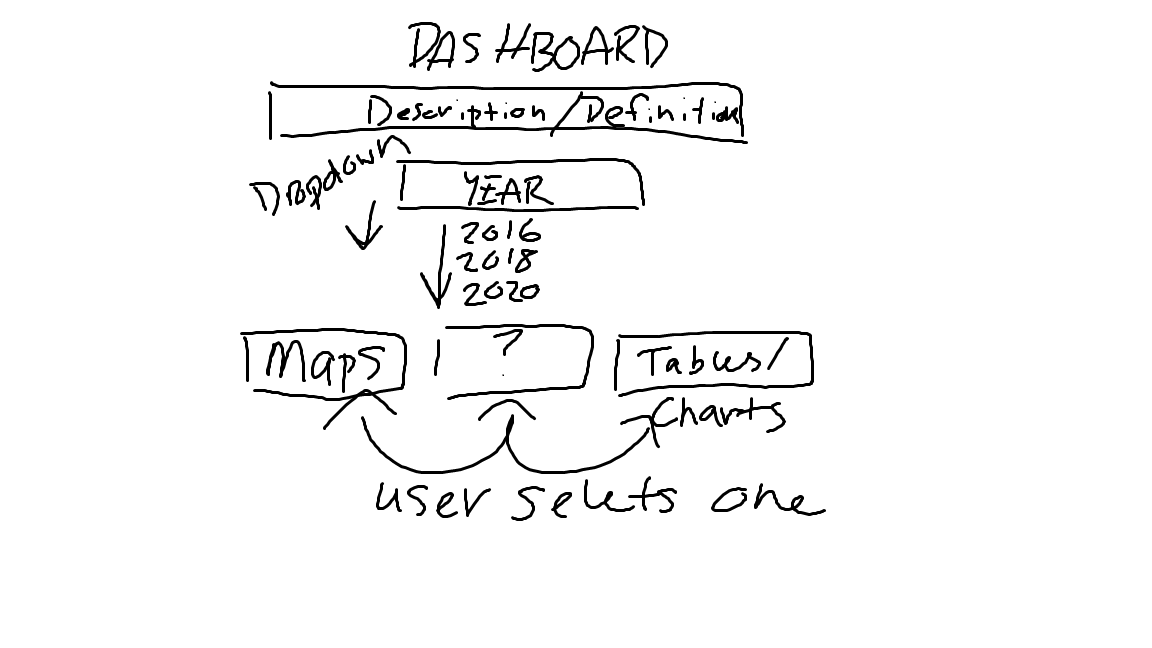 DASHBOARD
Description/Definition
Dropdown
YEAR
2016
2018
2020
Maps ? Tables/
Charts
user selets one